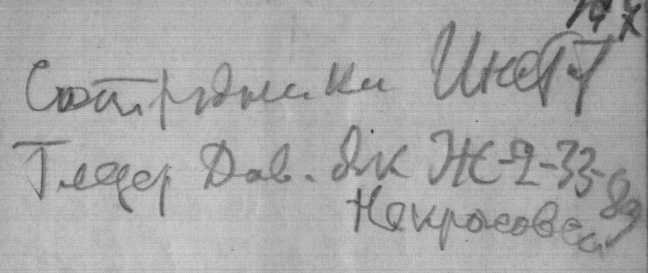 Сотрудники Инст
Глезер Дав. Як Ж-2-33-89
Некрасовва